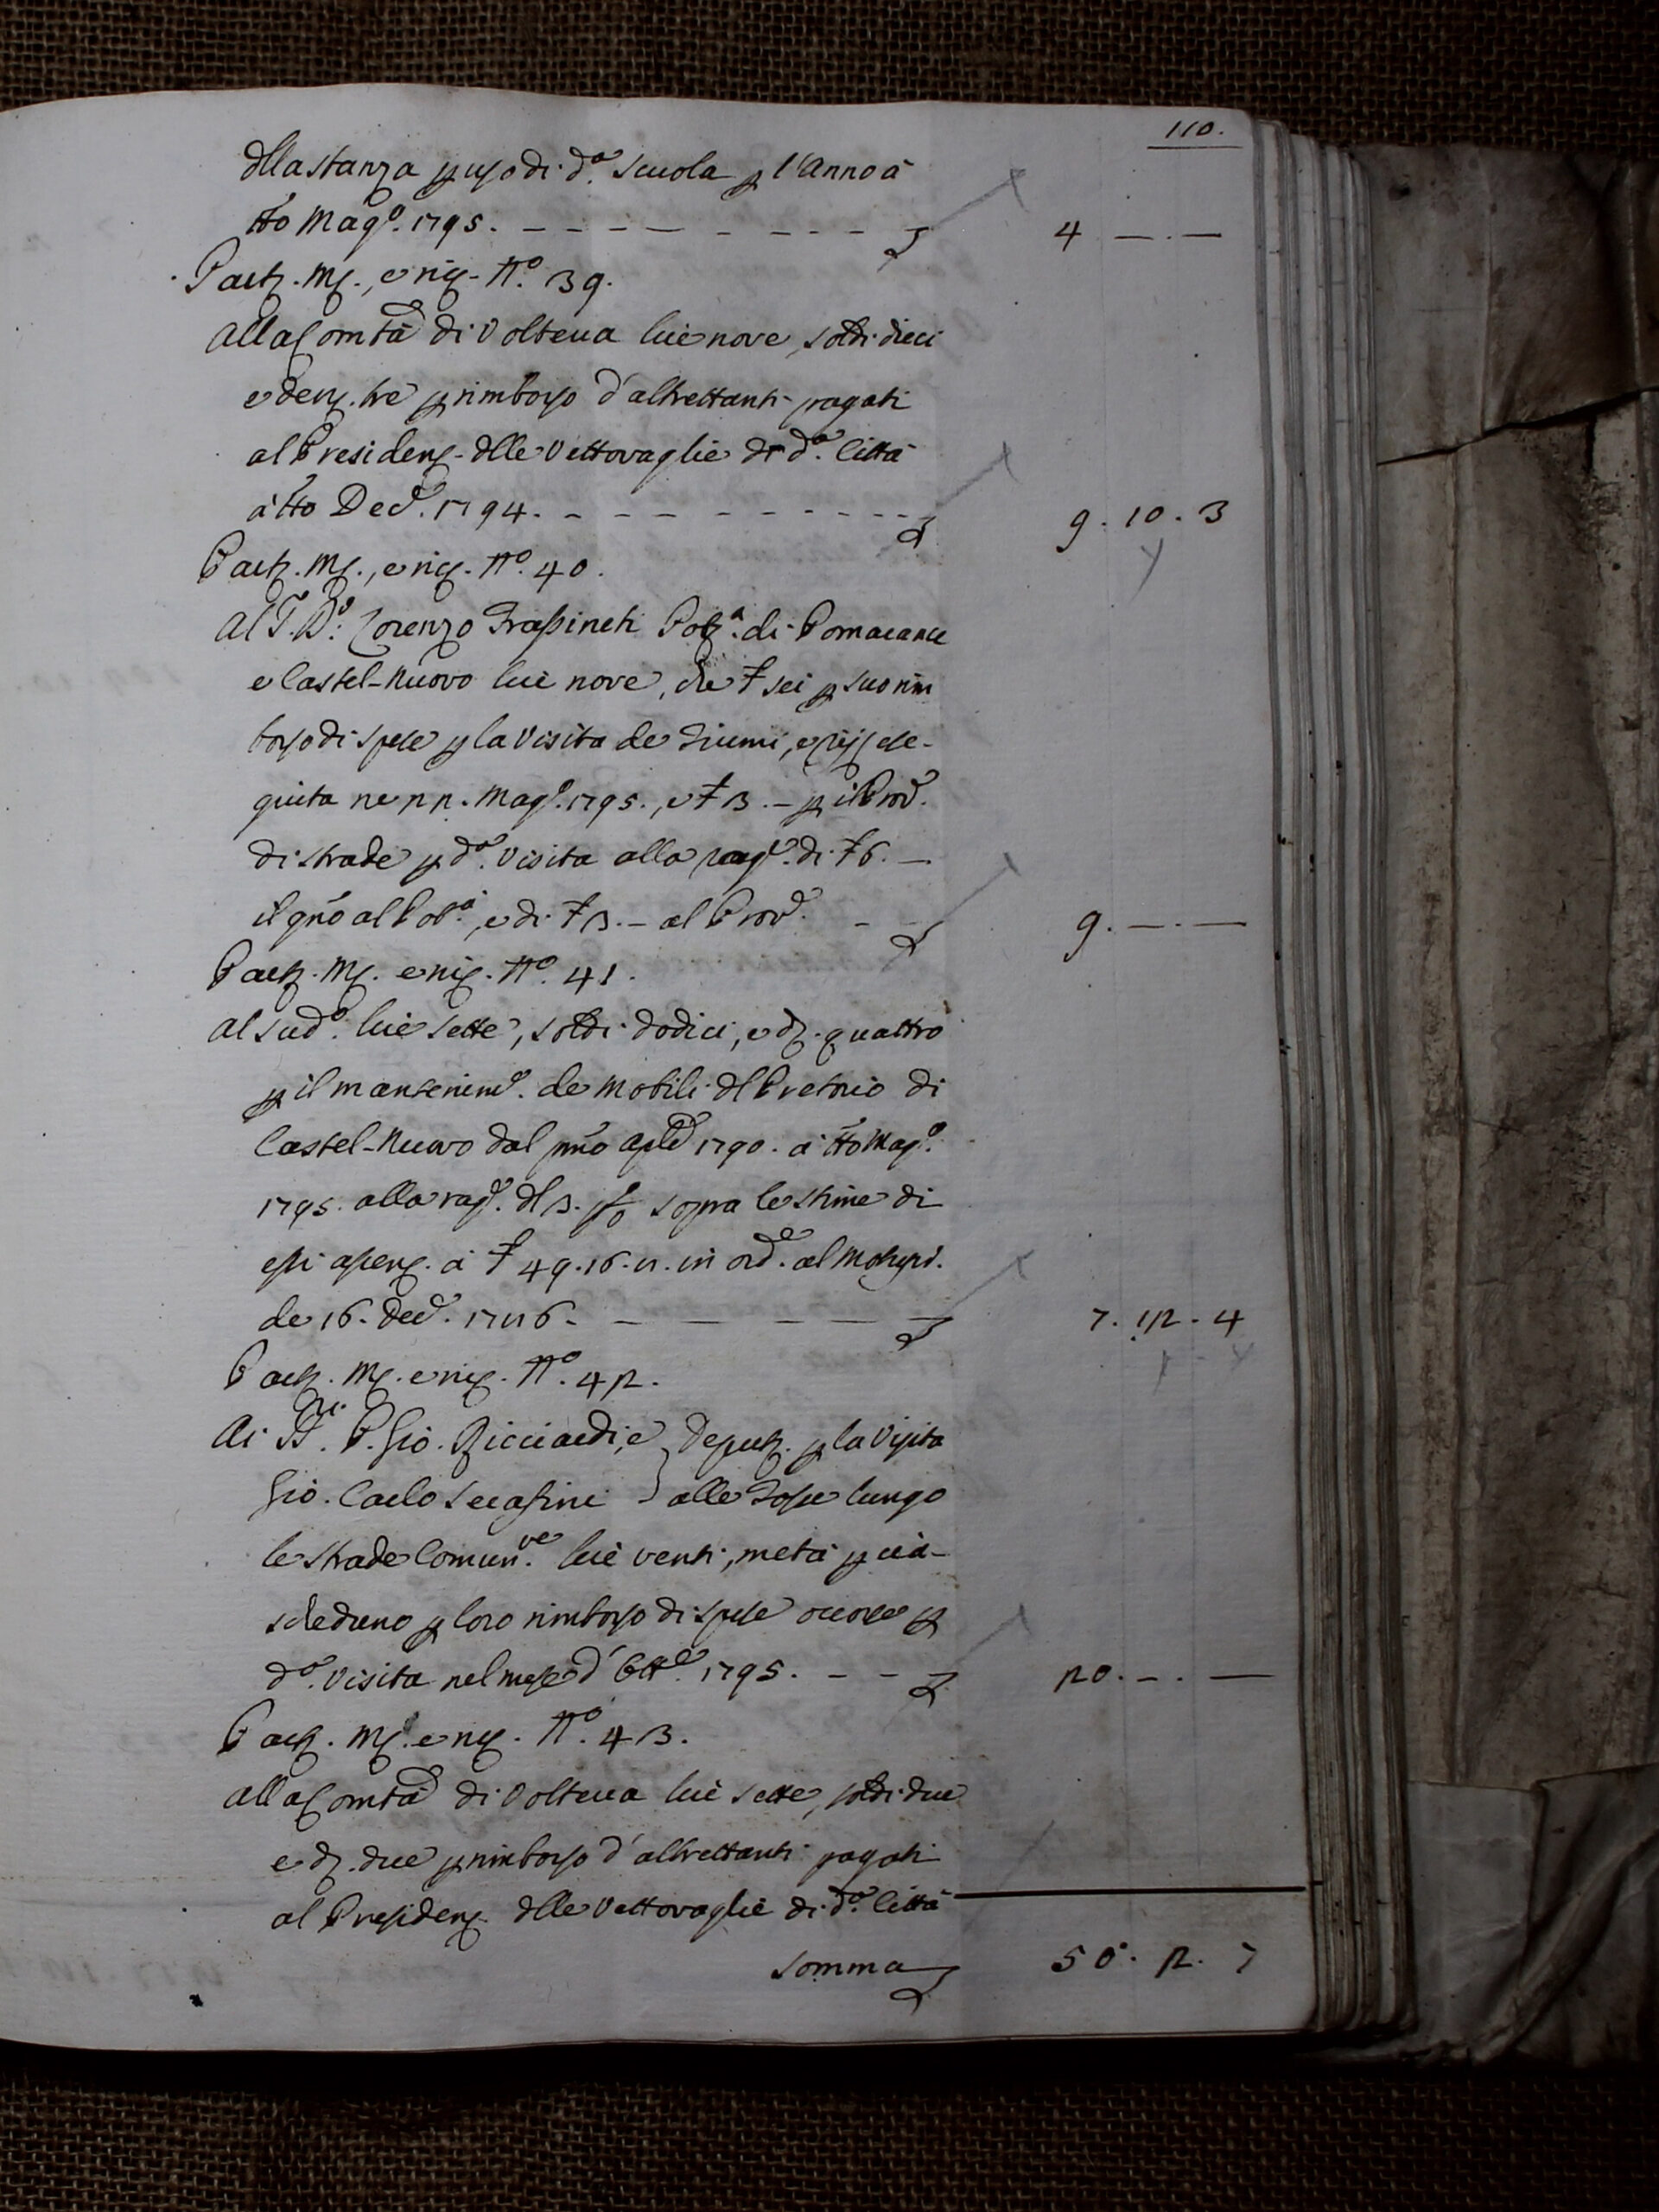 110.
dlla stanza p uso di d.a Scuola p l'Anno a
tto Mag.o 1795. — — — 4 —.—
Part. Mg., e ric. N.o 39.
Alla Comtà di Volterra lire nove, soldi dieci
e den. tre p rimborso d'altrettanti pagati
al Presiden. dlle Vettovaglie di d.a Città
a tto Dec.e 1794. — — — 9. 10. 3
Part. Mg., e ric. N.o 40.
Al S. D.r Lorenzo Frassineti Pot.a di Pomarance
e Castel-Nuovo lire nove, che £ sei p suo rim
borso di spese p la Visita de Fiumi, e ese-
guita ne pp. Mag.o 1795., e £ 3.— p il Prov.e
di strade p d.a Visita alla rag.e di £ 6.—
il gno al Pot.à, e di £ 3.— al Prov.e — 9.—.—
Part. Mg. e ric. N.o 41.
Al sud.o lire sette, soldi dodici, e d. quattro
p il mantenim.o de Mobili dl Pretorio di
Castel-Nuovo dal pmo Aple 1790. a tto Mag.o
1795. alla rag.e dl 3. p% sopra le stime di
essi ascen. a £ 49.16.11. in ord.e al Motupr.
de 16. Dec.e 1746 — — — 7. 12. 4
Part. Mg. e ric. N.o 42.
Ai SS.ri P. Gio. Ricciardi, e } Deput. p la Visita
Gio. Carlo Serafini } alle Fosse lungo
le strade Comun.ve lire venti, metà p cia-
scheduno p loro rimborso di spese occorse p
d.a Visita nel mese d'Ott.e 1795. — — 20.—.—
Part. Mg. e ric. N.o 43.
Alla Comtà di Volterra lire sette, soldi due
e d. due p rimborso d'altrettanti pagati
al Presiden. dlle Vettovaglie di d.a Città
Somma 50. 2. 7